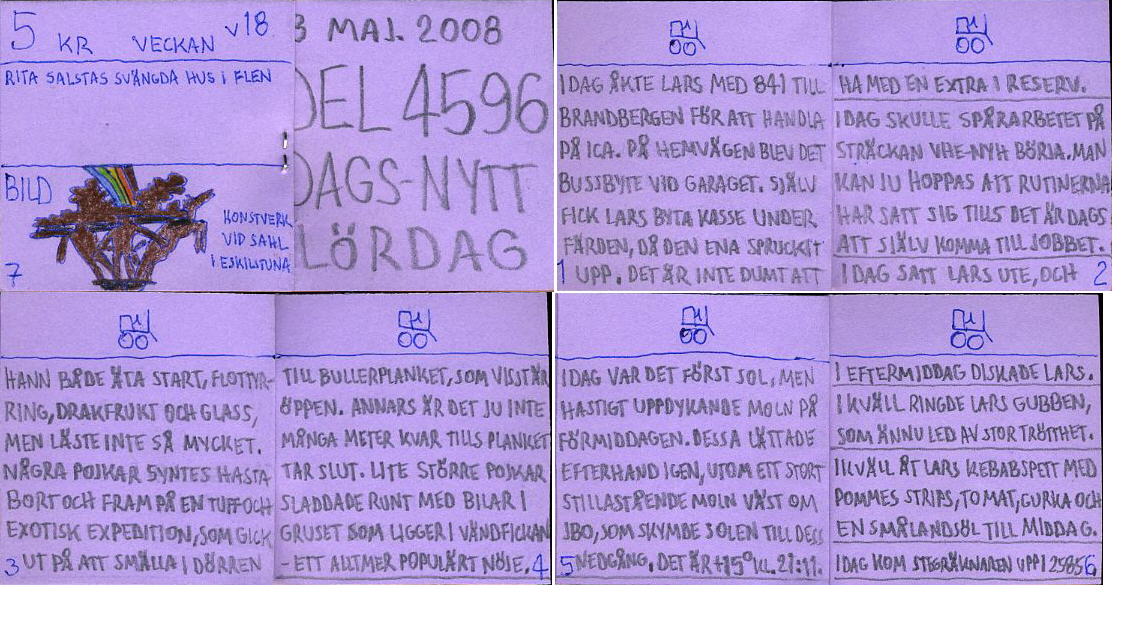 5 KR VECKAN V18
RITA SALSTAS SVÄNGDA HUS I FLEN
BILD
KONSTVERK
VID SAHL
I ESKILSTUNA
7
3 MAJ. 2008
DEL 4596
DAGS-NYTT
LÖRDAG
IDAG ÅKTE LARS MED 841 TILL
BRANDBERGEN FÖR ATT HANDLA
PÅ ICA. PÅ HEMVÄGEN BLEV DET
BUSSBYTE VID GARAGET. SJÄLV
FICK LARS BYTA KASSE UNDER
FÄRDEN, DÅ DEN ENA SPRUCKIT
1 UPP. DET ÄR INTE DUMT ATT
HA MED EN EXTRA I RESERV.
IDAG SKULLE SPÅRARBETET PÅ
STRÄCKAN VHE-NYH BÖRJA. MAN
KAN JU HOPPAS ATT RUTINERNA
HAR SATT SIG TILLS DET ÄR DAGS
ATT SJÄLV KOMMA TILL JOBBET.
IDAG SATT LARS UTE, OCH 2
HANN BÅDE ÄTA START, FLOTTYR-
RING, DRAKFRUKT OCH GLASS,
MEN LÄSTE INTE SÅ MYCKET.
NÅGRA POJKAR SYNTES HASTA
BORT OCH FRAM PÅ EN TUFF OCH
EXOTISK EXPEDITION, SOM GICK
3 UT PÅ ATT SMÄLLA I DÖRREN
TILL BULLERPLANKET, SOM VISST ÄR
ÖPPEN. ANNARS ÄR DET JU INTE
MÅNGA METER KVAR TILLS PLANKET
TAR SLUT. LITE STÖRRE POJKAR
SLADDADE RUNT MED BILAR I
GRUSET SOM LIGGER I VÄNDFICKAN
- ETT ALLTMER POPULÄRT NÖJE. 4
IDAG VAR DET FÖRST SOL, MEN
HASTIGT UPPDYKANDE MOLN PÅ
FÖRMIDDAGEN. DESSA LÄTTADE
EFTERHAND IGEN, UTOM ETT STORT
STILLASTÅENDE MOLN VÄST OM
JBO, SOM SKYMDE SOLEN TILL DESS
5 NEDGÅNG. DET ÄR +15° KL. 21:11.
I EFTERMIDDAG DISKADE LARS.
IKVÄLL RINGDE LARS GUBBEN,
SOM ÄNNU LED AV STOR TRÖTTHET.
IKVÄLL ÅT LARS KEBABSPETT MED
POMMES STRIPS, TOMAT, GURKA OCH
EN SMÅLANDSÖL TILL MIDDAG.
IDAG KOM STEGRÄKNAREN UPP I 29856